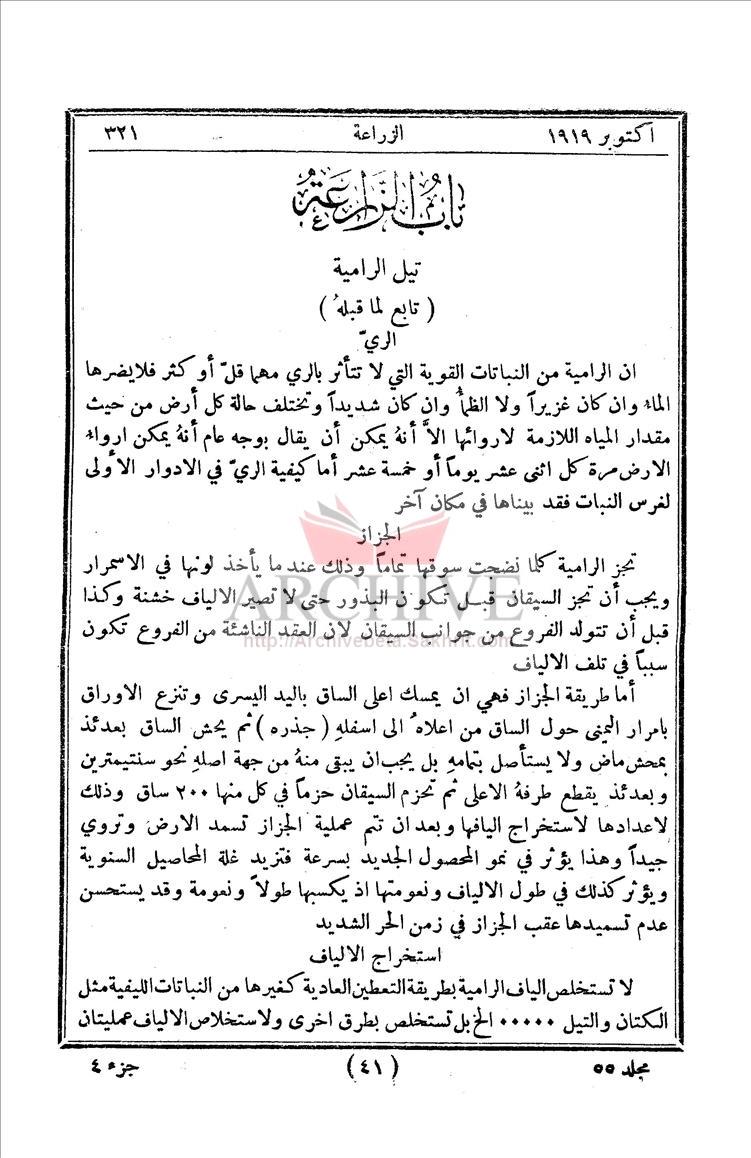 اكتوبر ١٩١٩ الزراعة ٣٢١
باب الزراعة
تيل الرامية
( تابع لما قبلهُ )
الريّ
ان الرامية من النباتات القوية التي لا تتأثر بالري مهما قلّ أو كثر فلا يضرها
الماء وان كان غزيراً ولا الظمأُ وان كان شديداً وتختلف حالة كل أرض من حيث
مقدار المياه اللازمة لاروائها الاَّ أنهُ يمكن أن يقال بوجه عام أنهُ يمكن ارواء
الارض مرة كل اثنى عشر يوماً أو خمسة عشر أما كيفية الريّ في الادوار الأولى
لغرس النبات فقد بيناها في مكان آخر
الجزاز
تجز الرامية كلما نضجت سوقها تماماً وذلك عند ما يأخذ لونها في الاسمرار
ويجب أن تجز السيقان قبل تكون البذور حتى لا تصير الالياف خشنة وكذا
قبل أن تتولد الفروع من جوانب السيقان لان العقد الناشئة من الفروع تكون
سبباً في تلف الالياف
أما طريقة الجزاز فهي ان يمسك اعلى الساق باليد اليسرى وتنزع الاوراق
بامرار اليمنى حول الساق من اعلاهُ الى اسفلهِ ( جذره ) ثم يحش الساق بعدئذ
بمحش ماض ولا يستأصل بتمامهِ بل يجب ان يبقى منهُ من جهة اصلهِ نحو سنتيمترين
وبعدئذ يقطع طرفهُ الاعلى ثم تحزم السيقان حزماً في كل منها ٢٠٠ ساق وذلك
لاعدادها لاستخراج اليافها وبعد ان تتم عملية الجزاز تسمد الارض وتروي
جيداً وهذا يؤثر في نمو المحصول الجديد بسرعة فتزيد غلة المحاصيل السنوية
ويؤثر كذلك في طول الالياف ونعومتها اذ يكسبها طولاً ونعومة وقد يستحسن
عدم تسميدها عقب الجزاز في زمن الحر الشديد
استخراج الالياف
لا تستخلص الياف الرامية بطريقة التعطين العادية كغيرها من النباتات الليفية مثل
الكتان والتيل ٠٠٠٠٠ الخ بل تستخلص بطرق اخرى ولاستخلاص الالياف عمليتان
مجلد ٥٥ ( ٤١ ) جزء ٤
ARCHIVE
http://Archivebeta.Sakhrit.com